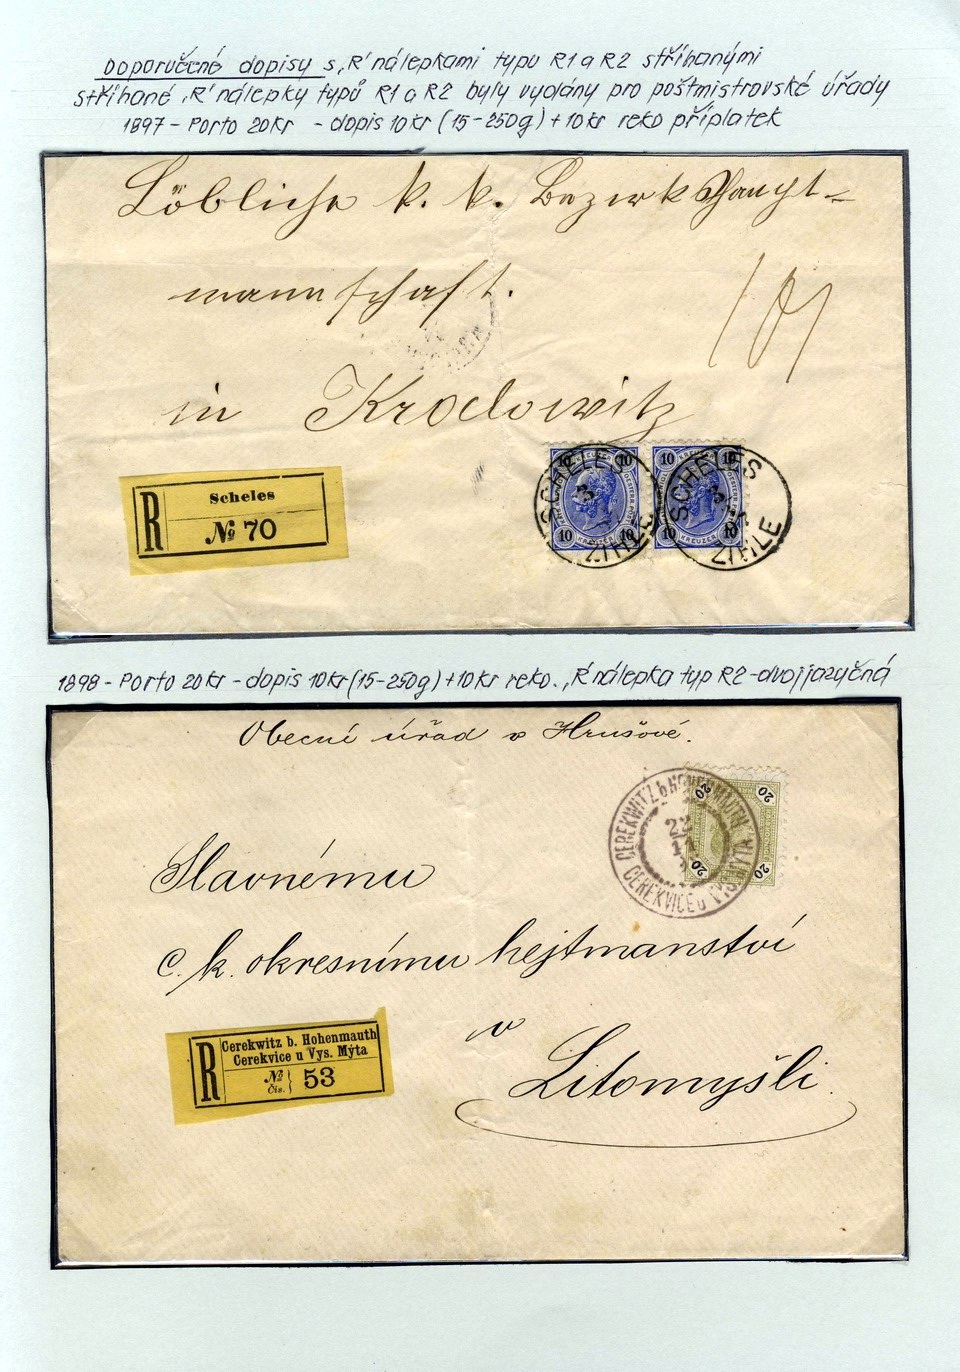 Doporučené dopisy s „R" nálepkami typu R1 a R2 stříhanými
stříhané „R" nálepky typů R1 a R2 byly vydány pro poštmistrovské úřady
1897 - Porto 20kr - dopis 10kr (15-250g) + 10kr reko příplatek
Löbliche k. k. Bezirkshaupt-
mannschaft.
in Krodowitz
R
Scheles
№ 70
SCHELES
ŽIHLE
SCHELES
ŽIHLE
10 KREUZER 10
10 KREUZER 10
10 10
10 KREUZER 10
1898 - Porto 20kr - dopis 10kr (15-250g) + 10kr reko. „R" nálepka typ R2 - dvojjazyčná
Obecní úřad v Hrušové.
CEREKWITZ b. HOHENMAUTH
22
11
CEREKVICE u VYS. MÝTA
20 20
20 20
Slavnému
c. k. okresnímu hejtmanství
v
Litomyšli.
R
Cerekwitz b. Hohenmauth
Cerekvice u Vys. Mýta
№
Čís. 53